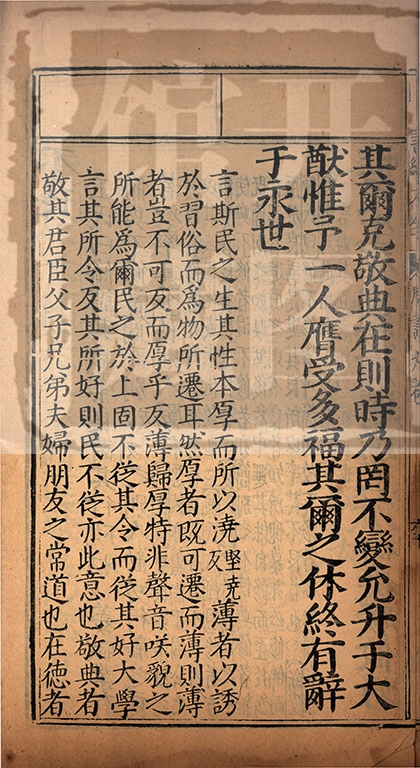 其爾克敬典在則時乃罔不變允升于大
猷惟予一人膺受多福其爾之休終有辭
于永世
言斯民之生其性本厚而所以澆堅堯反薄者以誘
於習俗而爲物所遷耳然厚者既可遷而薄則薄
者豈不可反而厚乎反薄歸厚特非聲音咲貌之
所能爲爾民之於上固不從其令而從其好大學
言其所令反其所好則民不從亦此意也敬典者
敬其君臣父子兄弟夫婦朋友之常道也在徳者